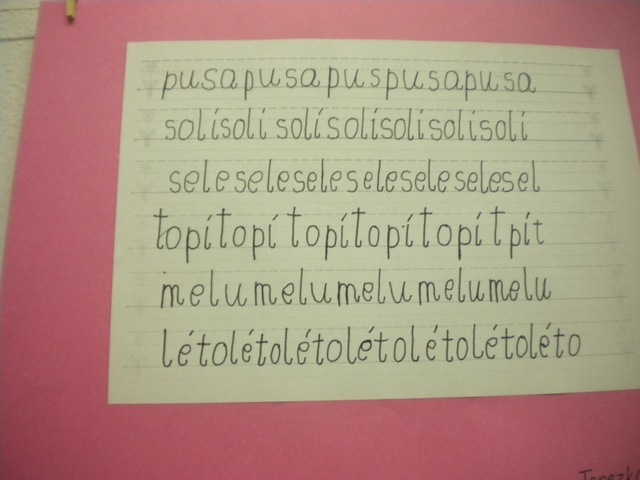 pusapusapuspusapusa
solísolí solísolísolísolísolí
seleseleseleseleseleselesel
topítopí topítopítopítpít
melumelumelumelumelu
létolétolétolétolétolétoléto